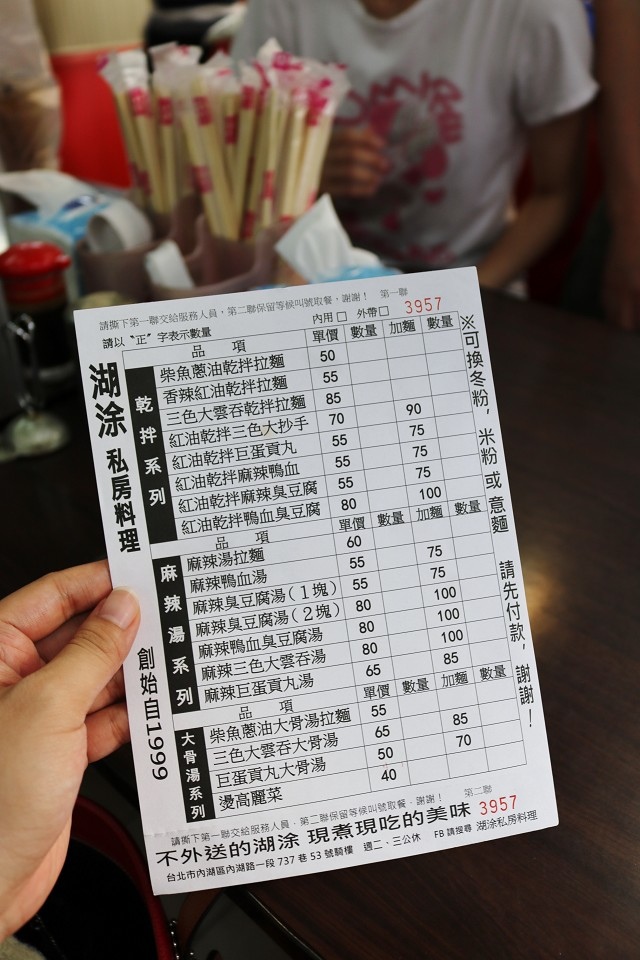 請撕下第一聯交給服務人員，第二聯保留等候叫號取餐，謝謝！ 第一聯
3957
請以〝正〞字表示數量
內用□ 外帶□
湖涂 私房料理
創始自1999
乾拌系列
品 項 單價 數量 加麵 數量
柴魚蔥油乾拌拉麵 50
香辣紅油乾拌拉麵 55
三色大雲吞乾拌拉麵 85
紅油乾拌三色大抄手 70 90
紅油乾拌巨蛋貢丸 55 75
紅油乾拌麻辣鴨血 55 75
紅油乾拌麻辣臭豆腐 55 75
紅油乾拌鴨血臭豆腐 80 100
麻辣湯系列
品 項 單價 數量 加麵 數量
麻辣湯拉麵 60
麻辣鴨血湯 55 75
麻辣臭豆腐湯(1塊) 55 75
麻辣臭豆腐湯(2塊) 80 100
麻辣鴨血臭豆腐湯 80 100
麻辣三色大雲吞湯 80 100
麻辣巨蛋貢丸湯 65 85
大骨湯系列
品 項 單價 數量 加麵 數量
柴魚蔥油大骨湯拉麵 55
三色大雲吞大骨湯 65 85
巨蛋貢丸大骨湯 50 70
燙高麗菜 40
※可換冬粉，米粉或意麵 請先付款，謝謝！
請撕下第一聯交給服務人員．第二聯保留等候叫號取餐．謝謝！ 第二聯
3957
不外送的湖涂 現煮現吃的美味
台北市內湖區內湖路一段 737 巷 53 號騎樓 週二、三公休 FB 請搜尋 湖涂私房料理